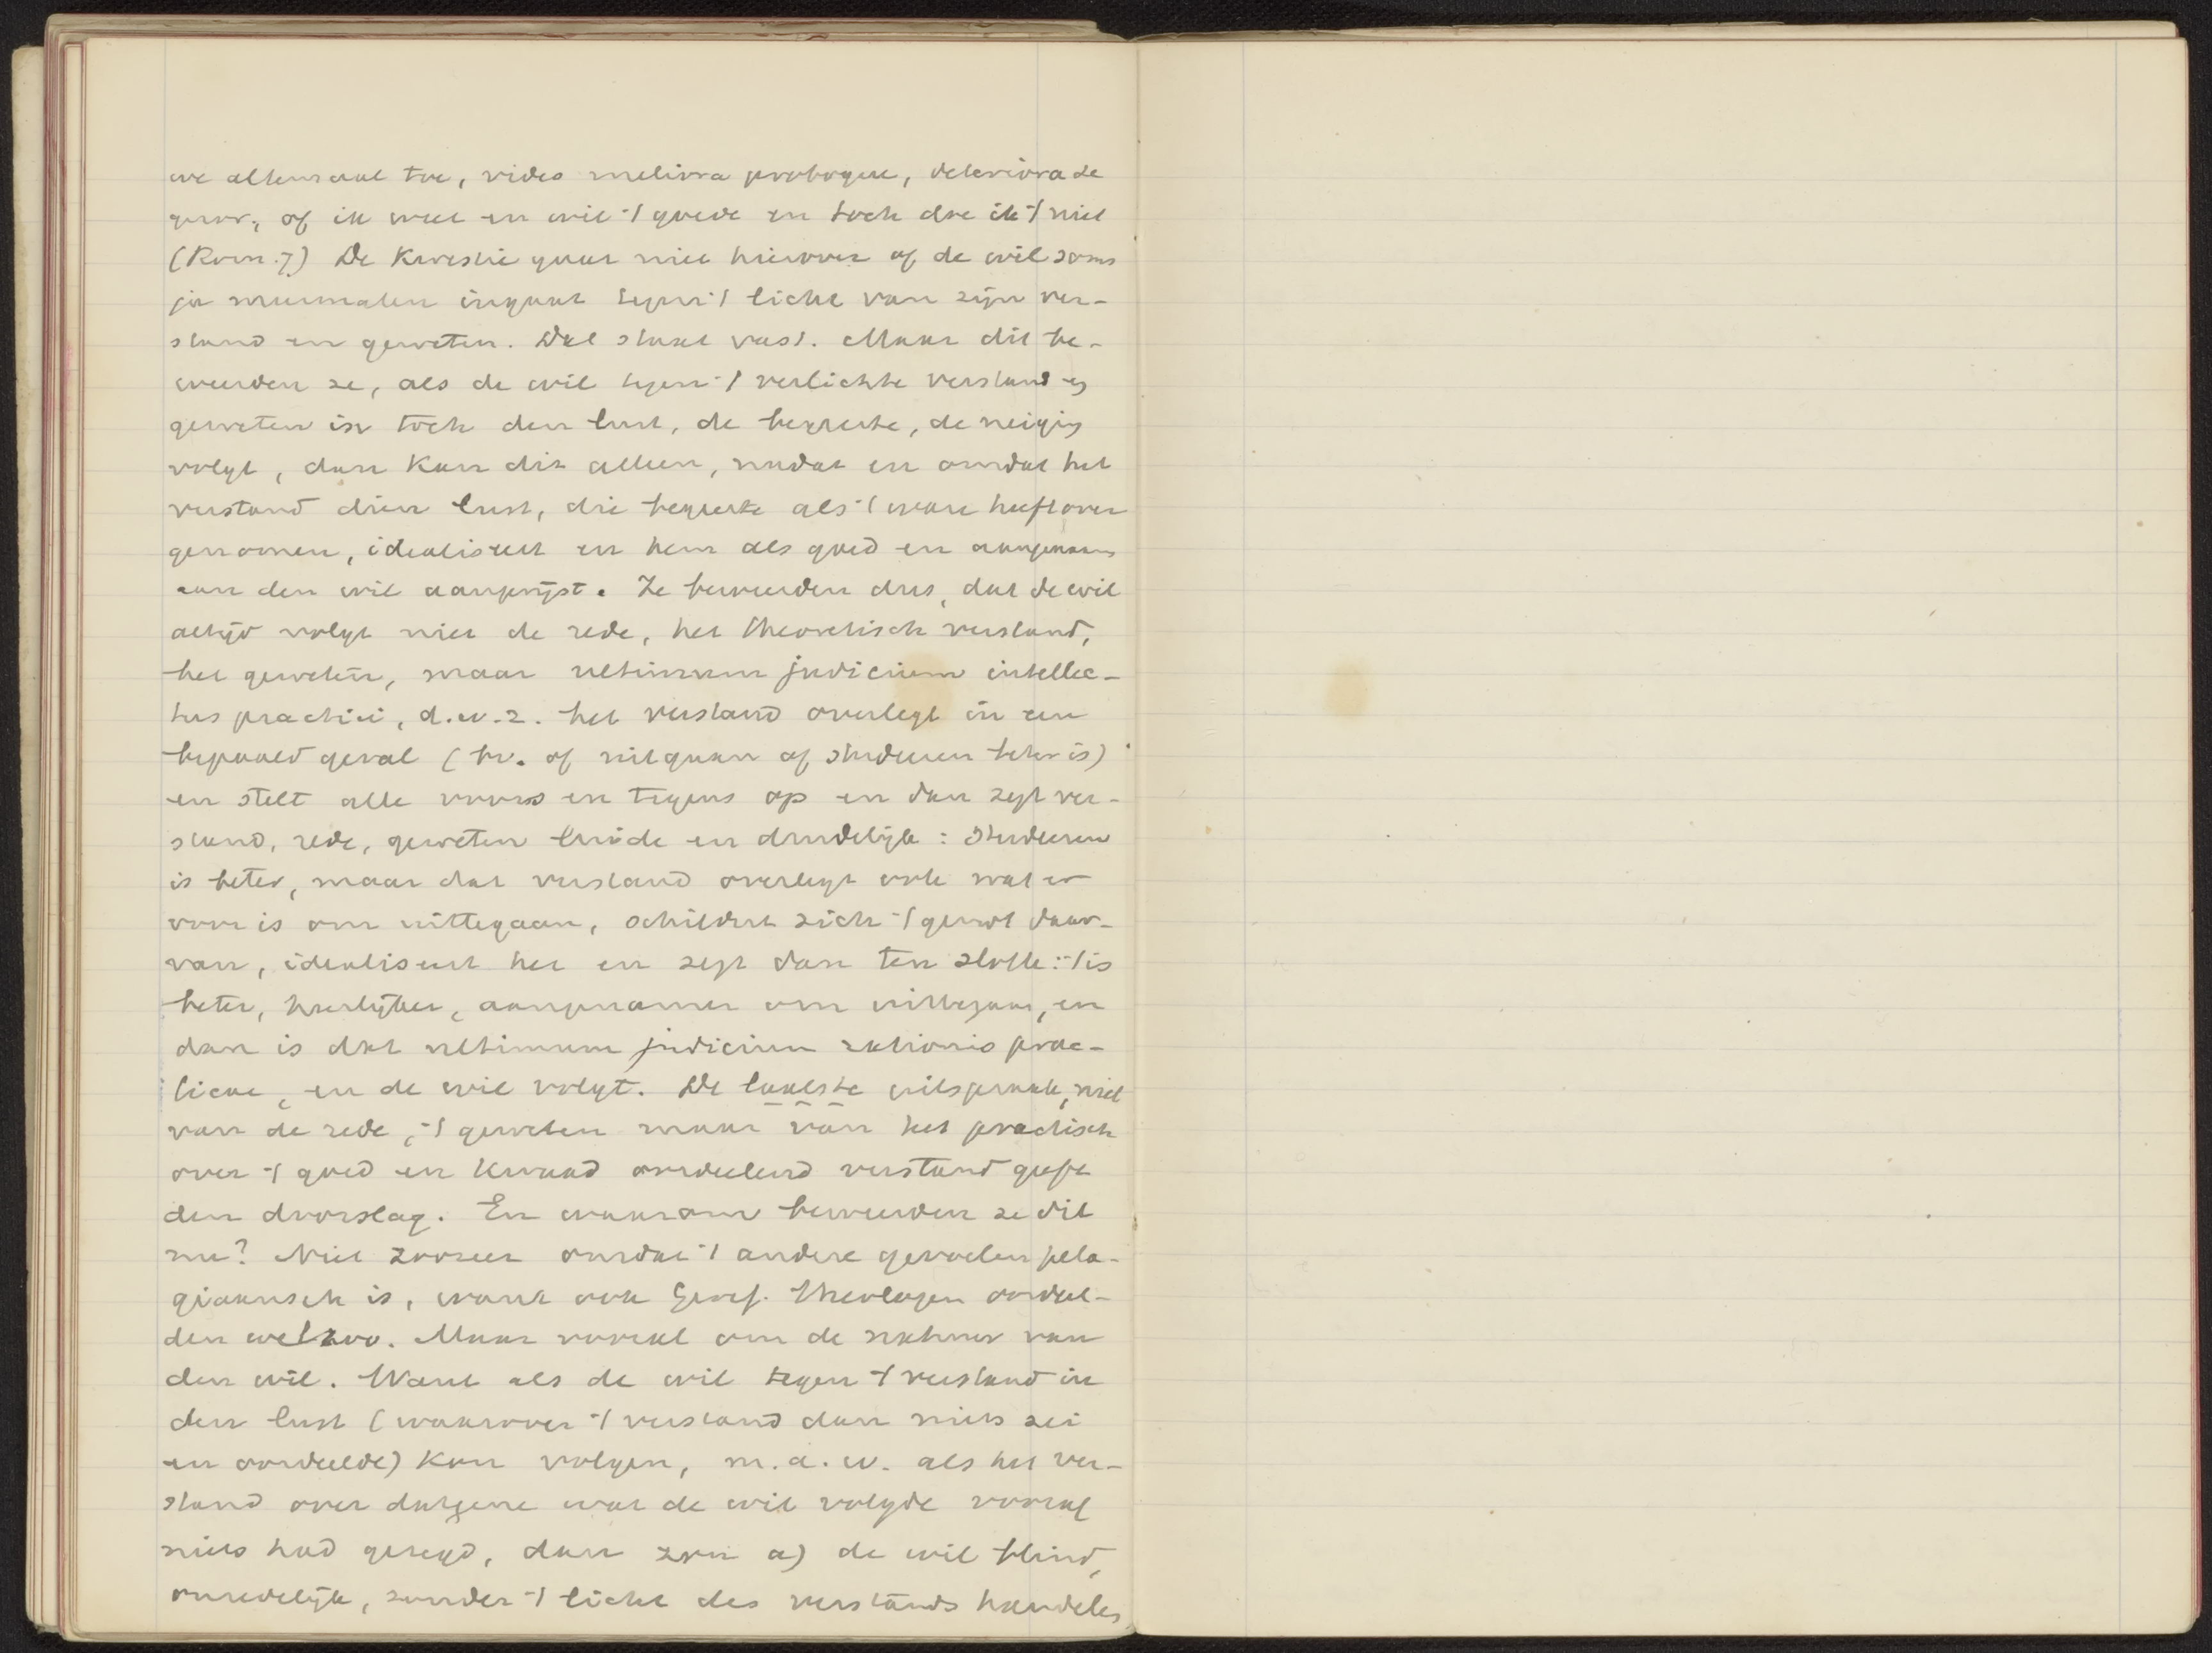 we altemaal toe, video meliora proboque, deteriora se
quor, of ik weet en wil 't goede en toch doe ik 't niet
(Rom. 7) De kwestie gaat niet hierover of de wil soms
ja meermalen ingaat tegen 't licht van zijn ver-
stand en geweten. Dat staat vast. Maar dit be-
weerden ze, als de wil tegen 't verlichte verstand en
geweten in toch den lust, de begeerte, de neiging
volgt, dan kan dit alleen, nadat en omdat het
verstand dien lust, die begeerte als 't ware heeft over
genomen, idealiseert en hem als goed en aangenaam
aan den wil aanprijst. Ze beweerden dus, dat de wil
altijd volgt niet de rede, het theoretisch verstand,
het geweten, maar ultimum judicium intellec-
tus practici, d.w.z. het verstand overlegt in een
bepaald geval (bv. of uitgaan of studeeren beter is)
en stelt alle voors en tegens op en dan zegt ver-
stand, rede, geweten luide en duidelijk: studeeren
is beter, maar dat verstand overlegt ook wat er
voor is om uittegaan, schildert zich 't genot daar-
van, idealiseert het en zegt dan ten slotte: 't is
beter, heerlijker, aangenamer om uittegaan, en
dan is dat ultimum judicium rationis prac-
ticae, en de wil volgt. De laatste uitspraak, niet
van de rede, 't geweten maar van het practisch
over 't goed en kwaad oordeelend verstand geeft
den doorslag. En waarom beweerden ze dit
nu? Niet zoozeer omdat 't andere gevoelen pela-
giaansch is, want ook Geref. theologen oordeel-
den wel zoo. Maar vooral om de natuur van
den wil. Want als de wil tegen 't verstand in
den lust (waarover 't verstand dan niets zei
en oordeelde) kon volgen, m.a.w. als het ver-
stand over datgene wat de wil volgde vooraf
niets had gezegd, dan zou a) de wil blind,
onredelijk, zonder 't licht des verstands handelen